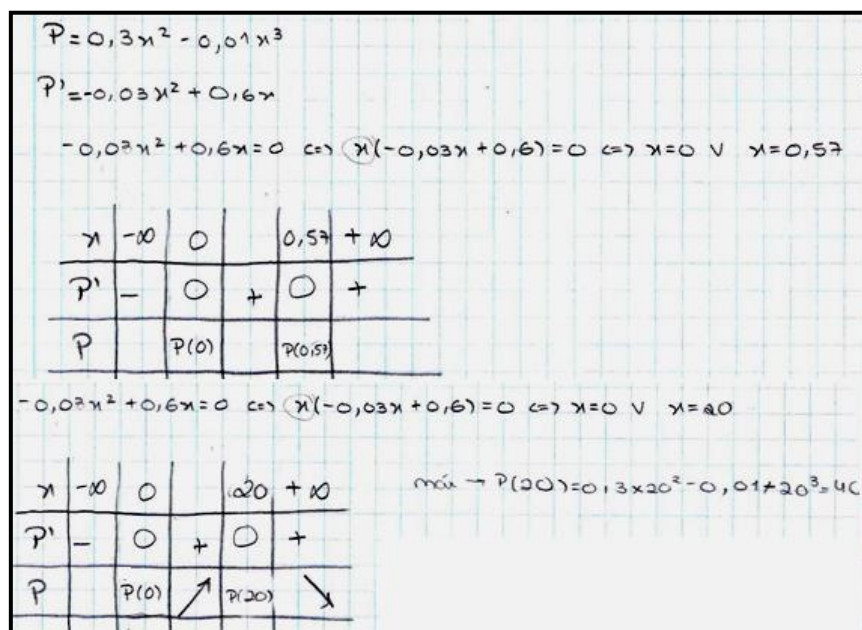 P=0,3x²-0,01x³
P'=-0,03x²+0,6x
-0,03x²+0,6x=0 <=> x(-0,03x+0,6)=0 <=> x=0 V x=0,57
x -∞ 0 0,57 +∞
P' - 0 + 0 +
P P(0) P(0,57)
-0,03x²+0,6x=0 <=> x(-0,03x+0,6)=0 <=> x=0 V x=20
x -∞ 0 20 +∞ máx → P(20)=0,3×20²-0,01×20³=40
P' - 0 + 0 +
P P(0) ↗ P(20) ↘